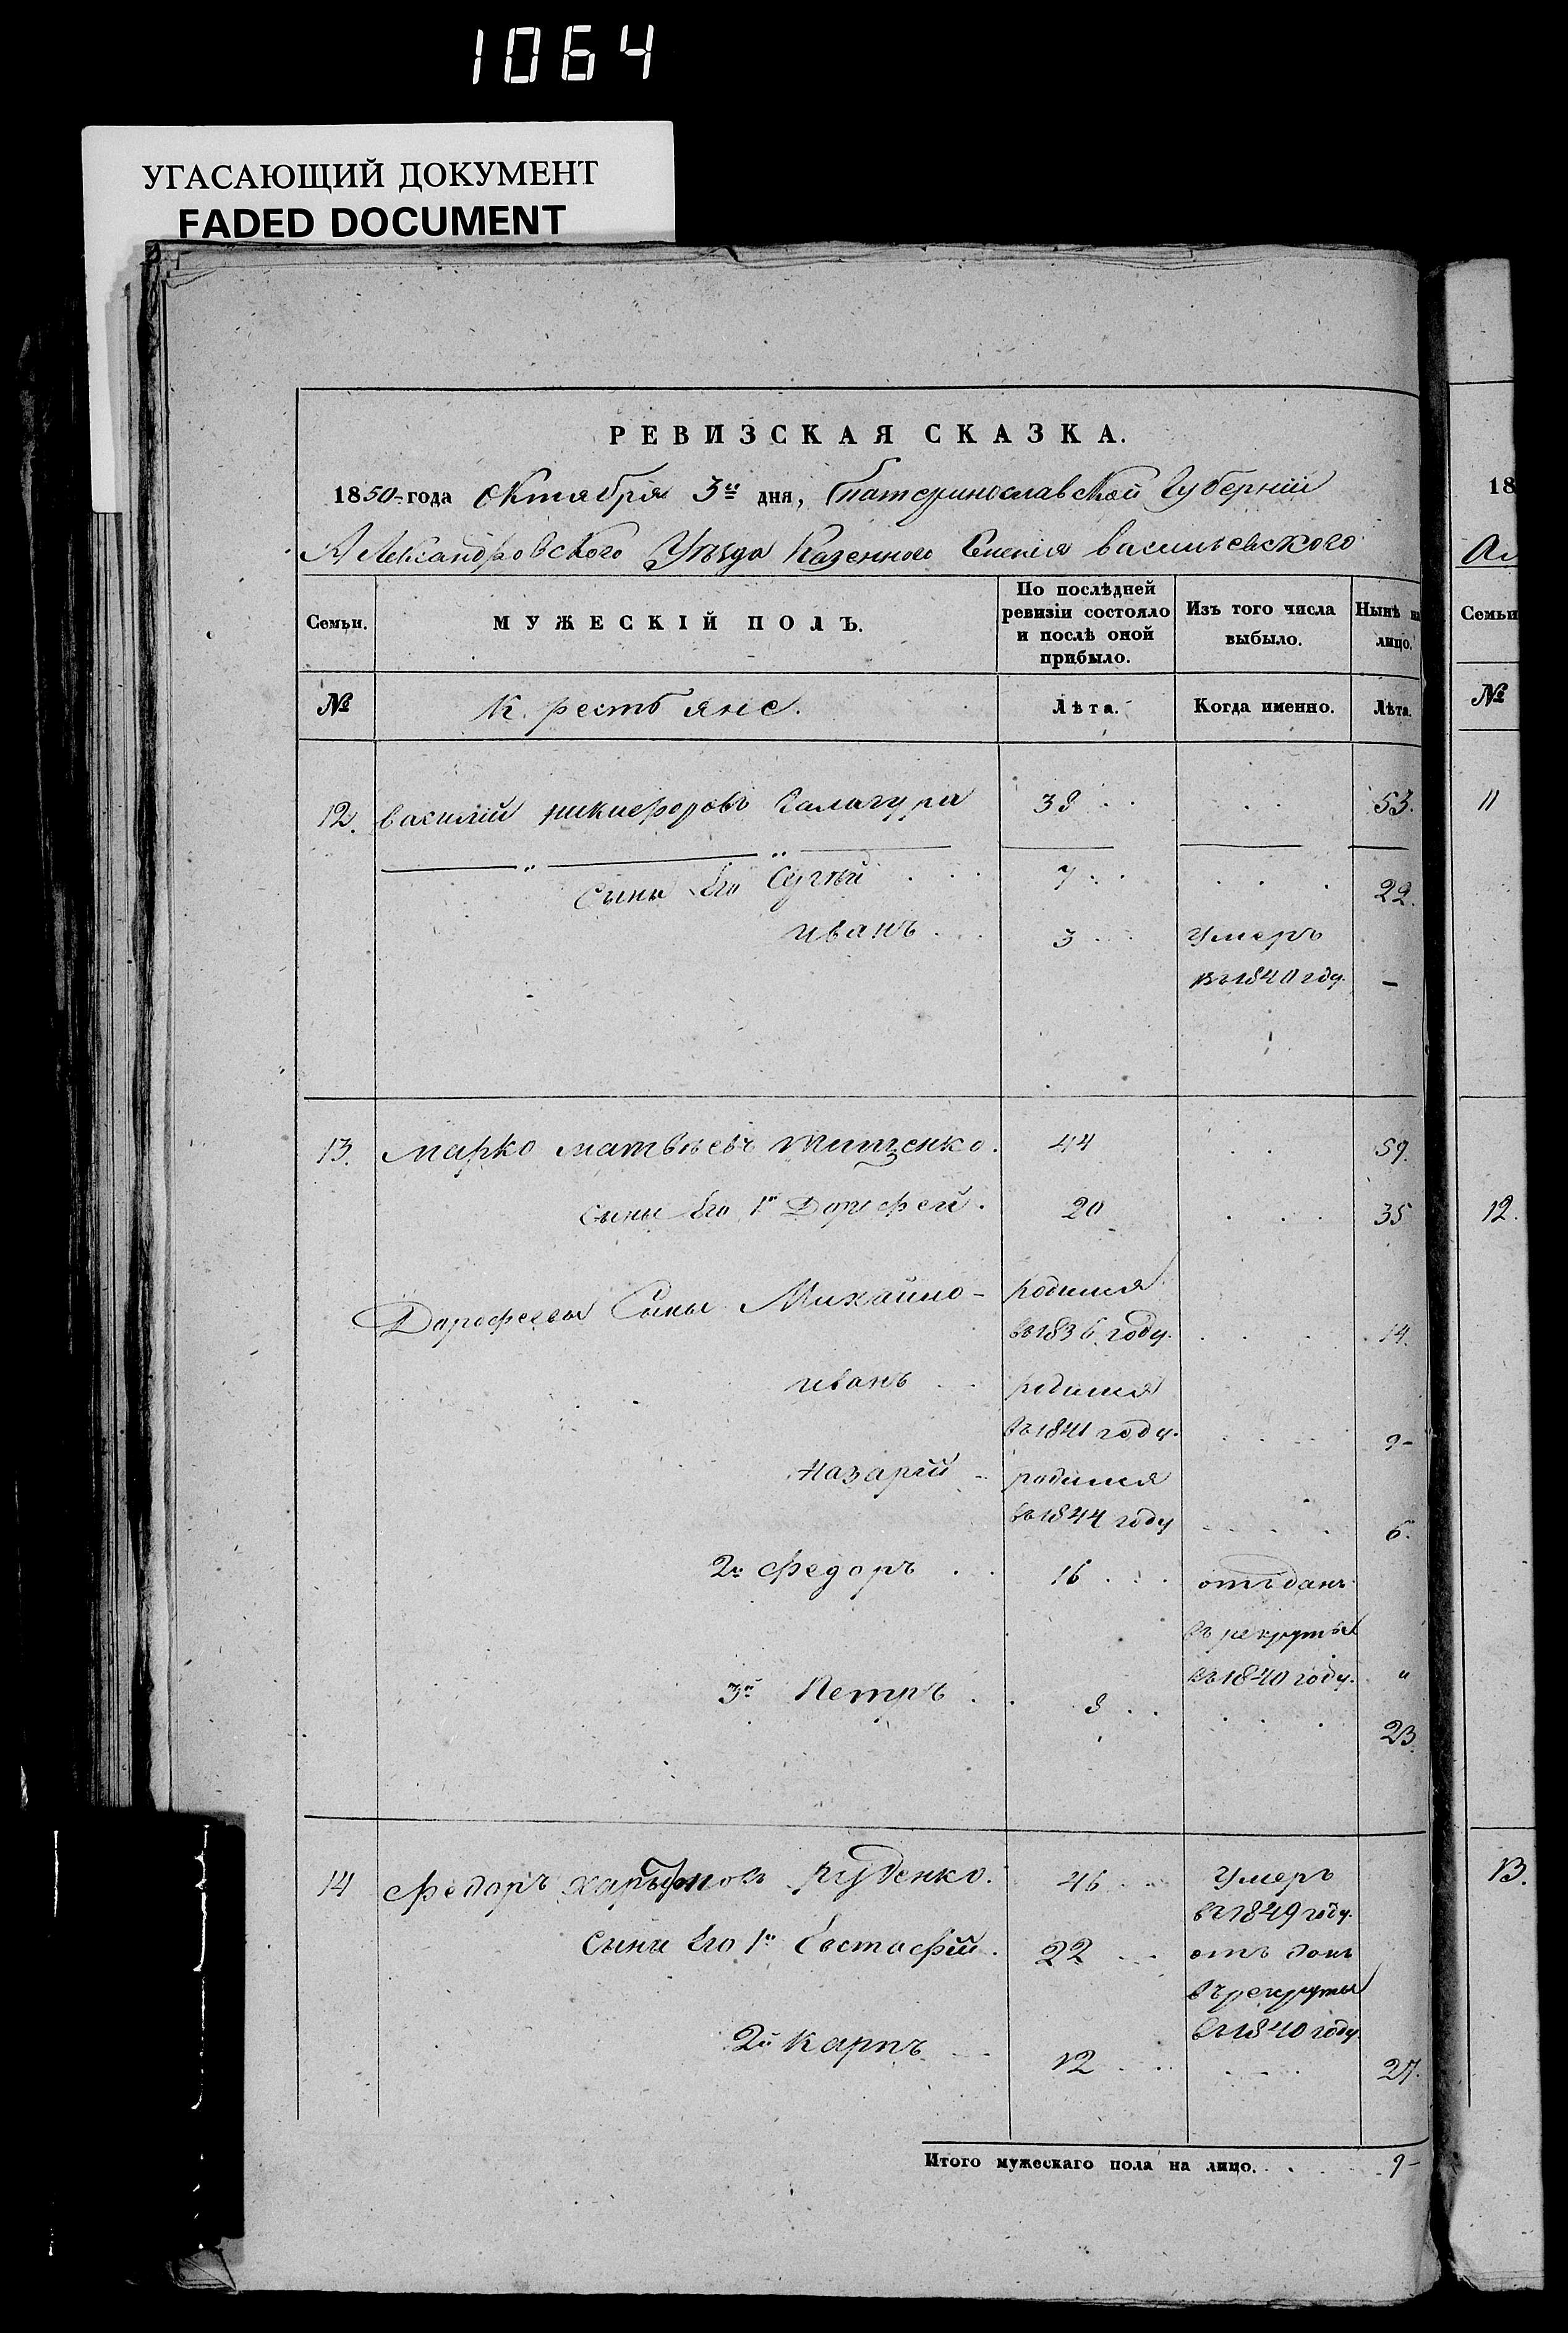 1064
УГАСАЮЩИЙ ДОКУМЕНТ
FADED DOCUMENT
РЕВИЗСКАЯ СКАЗКА.
1850 года октября 3го дня, Екатеринославской Губернии
Александровского Уѣзда Казенного Селения васильевского
Семьи. МУЖЕСКІЙ ПОЛЪ. По послѣдней ревизіи состояло и послѣ оной прибыло. Изъ того числа выбыло. Нынѣ на лицо.
№ Крестьяне. Лѣта. Когда именно. Лѣта.
12. василій никифоровъ Калагура 38 53.
Сыны Его Сергѣй 7 22.
иванъ 3 умеръ
въ 1840 году. –
13. Марко матвѣевъ тищенко. 44 59.
сыны Его 1й Дорофей. 20 35
Дорофеевы Сыны Михайло – родился
въ 1836 году. 14.
иванъ родился
въ 1841 году. 9-
Назарій родился
въ 1844 году 6.
2й Федоръ 16 отъданъ
въ рекруты
въ 1840 году. "
3й Петръ 8 23.
14 Федоръ Руденко. 46 умеръ
въ 1849 году.
Сыны Его 1й Евстафій. 22 отъ данъ
въ рекруты
въ 1840 году.
2й Карпъ 12 27.
Итого мужескаго пола на лицо. 9-
18
Ал
Семьи
№
11
12.
13.